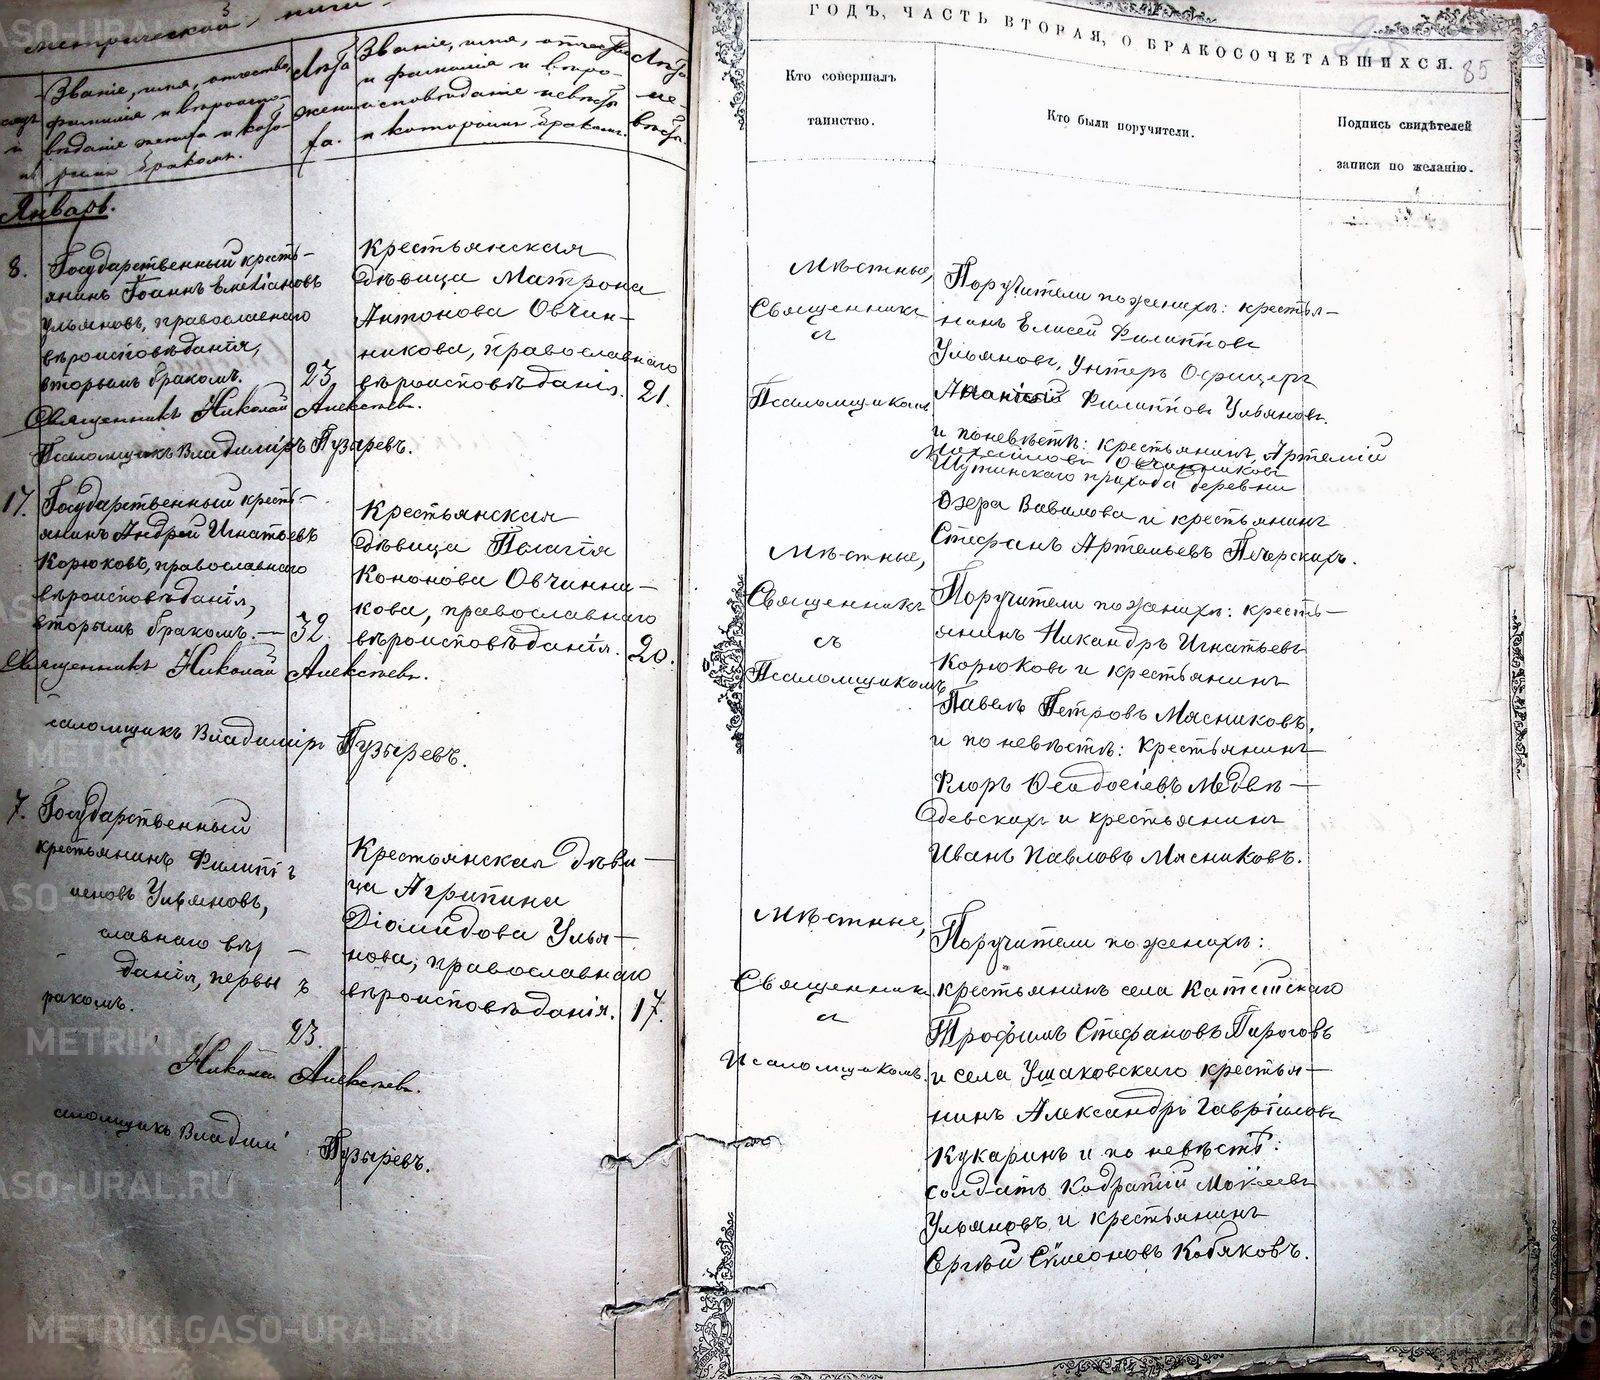 метрической книги
Званіе, имя, отчество,
фамилія и вѣроиспо-
вѣданіе жениха и кото-
рымъ бракомъ.
Лѣта
жени-
ха.
Званіе, имя, отчество
и фамилія и вѣро-
исповѣданіе невѣсты
и которымъ бракомъ.
Лѣта
не-
вѣсты.
Январь.
8. Государственный кресть-
янинъ Іоаннъ Емеліановъ
Ульяновъ, православнаго
вѣроисповѣданія,
вторымъ бракомъ. 23
Крестьянская
дѣвица Матрона
Антонова Овчин-
никова, православнаго
вѣроисповѣданія. 21.
Священникъ Николай Алексѣевъ.
Псаломщикъ Владиміръ Пузыревъ.
17. Государственный кресть-
янинъ Андрей Игнатьевъ
Корюковъ, православнаго
вѣроисповѣданія,
вторымъ бракомъ. 32.
Крестьянская
дѣвица Пелагія
Кононова Овчинни-
кова, православнаго
вѣроисповѣданія. 20.
Священникъ Николай Алексѣевъ.
саломщикъ Владиміръ Пузыревъ.
7. Государственный
крестьянинъ Филиппъ
Ульяновъ,
славнаго вѣр
данія, первы ъ
ракомъ.
23.
Крестьянская дѣви-
ца Агрипина
Діомидова Улья-
нова, православнаго
вѣроисповѣданія. 17.
Николай Алексѣевъ.
саломщикъ Владимі Пузыревъ.
ГОДЪ, ЧАСТЬ ВТОРАЯ, О БРАКОСОЧЕТАВШИХСЯ.
85
Кто совершалъ
таинство.
Кто были поручители.
Подпись свидѣтелей
записи по желанію.
Мѣстные,
Священникъ
съ
Псаломщикомъ
Поручители по женихѣ: крестья-
нинъ Елисей Филипповъ
Ульяновъ, Унтеръ Офицеръ
Ананій Филипповъ Ульяновъ.
и по невѣстѣ: крестьянинъ Артемій
Михайловъ Овчинниковъ
Шутинскаго прихода деревни
Озера Вавилова и крестьянинъ
Стефанъ Артемьевъ Печерскихъ.
Мѣстные,
Священникъ
съ
Псаломщикомъ
Поручители по женихѣ: кресть-
янинъ Никандръ Игнатьевъ
Корюковъ и крестьянинъ
Павелъ Петровъ Мясниковъ,
и по невѣстѣ: крестьянинъ
Флоръ Ѳеодосіевъ Медвѣ-
девскихъ и крестьянинъ
Иванъ Павловъ Мясниковъ.
Мѣстные,
Священникъ
съ
Псаломщикомъ.
Поручители по женихѣ:
крестьянинъ села Катайскаго
Трофимъ Стефановъ Пироговъ
и села Ушаковскаго крестья-
нинъ Александръ Гавріиловъ
Кукаринъ и по невѣстѣ:
солдатъ Кодратій Мокѣевъ
Ульяновъ и крестьянинъ
Сергѣй Симоновъ Кобяковъ.
METRIKI.GASO-URAL.RU